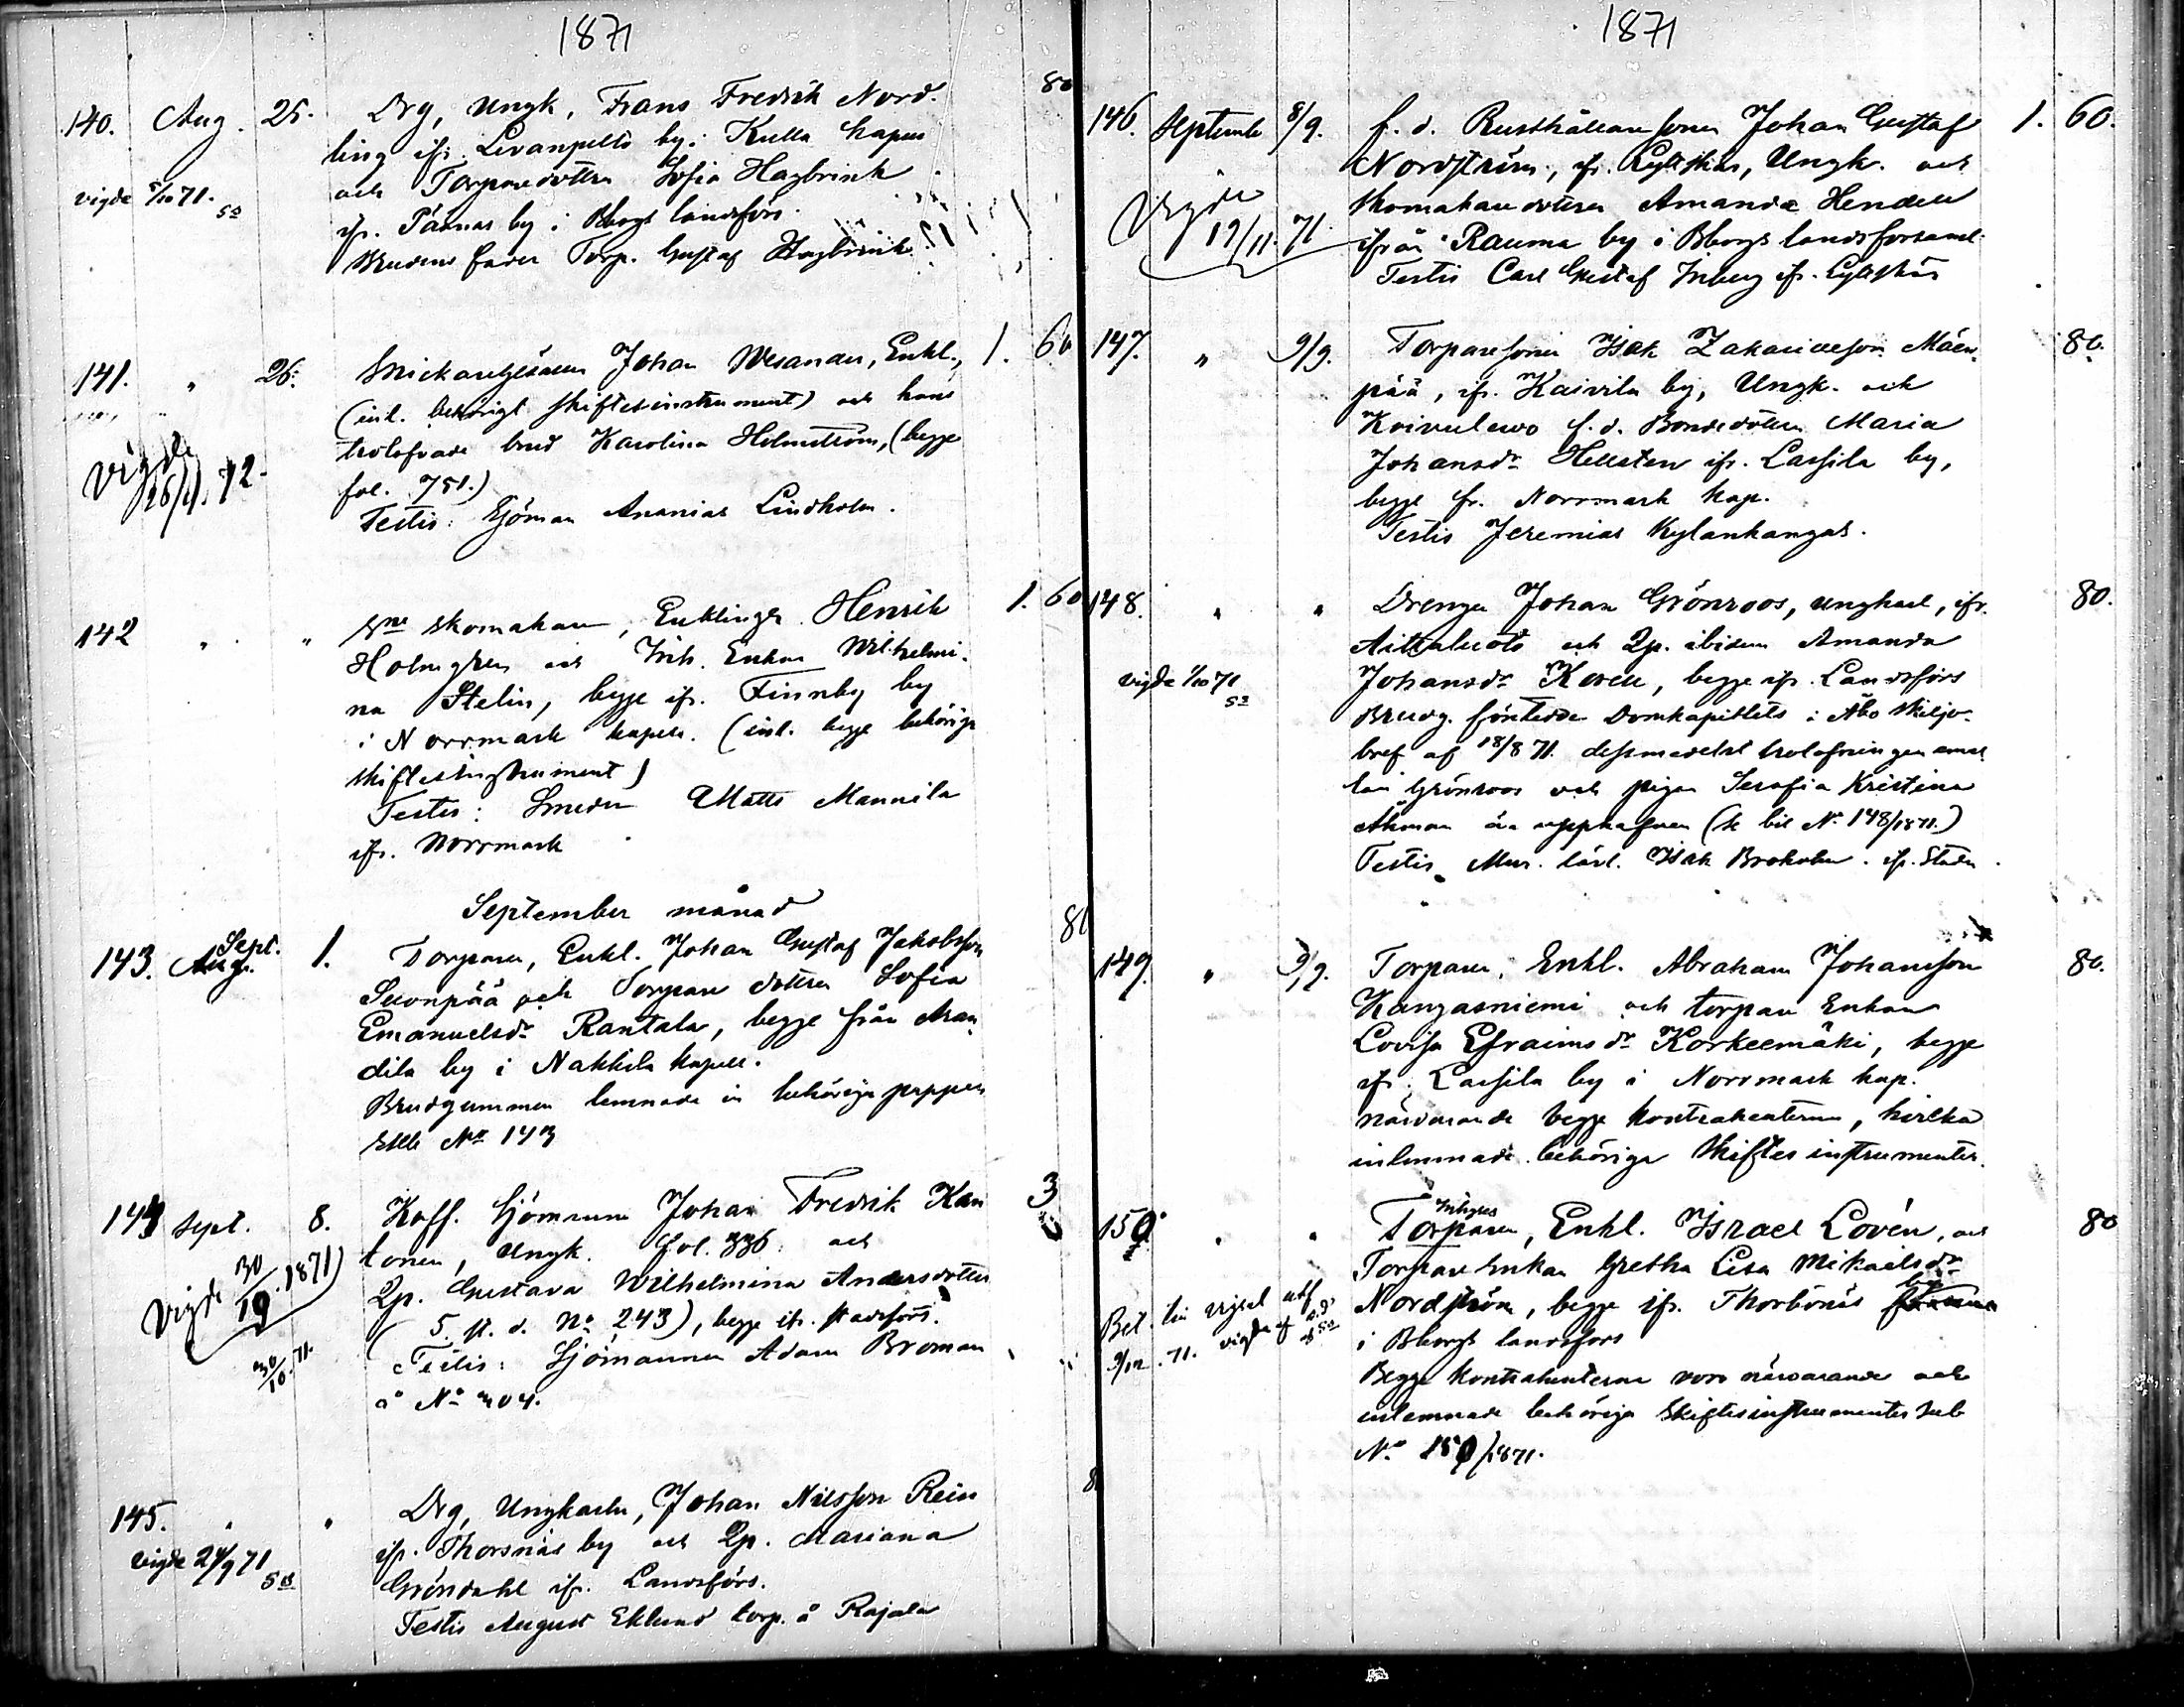 1871
140. Aug. 25. Drg, Ungk. Frans Fredrik Nord- 80
ling ifr. Levanpelto by i Kulla kapell
och Torparedottren Sofia Hagbrink
vigde 5/10 71.
ifr. Pännas by i Bborgs landsförs.
Brudens fader Torp. Gustaf Hagbrink
141. " 26. Snickaregesällen Johan Wesander, Enkl., 1. 60
(inl. behörigt skiftesinstrument) och hans
trolofvade brud Karolina Holmström, (begge
vigde 26/ 72.
fol. 751.)
Testis: Sjöman Ananias Lindholm.
142 " " skomakaren, Enklingen Henrik 1. 60
Holmgren och Inh. Enkan Wilhelmi-
na Stelin, begge ifr. Finnby by
i Norrmark kapell. (inl. begge behöriga
skiftesinstrument)
Testis: Smeden Matts Mannila
ifr. Norrmark
September månad
143. Aug. Sept. 1. Torparen, Enkl. Johan Gustaf Jakobsson 80
Suonpää och Torpare dottren Sofia
Emanuelsdr Rantala, begge från Anan-
dila by i Nakkila kapell.
Brudgummen lemnade in behöriga papper
No 143
144 Sept. 8. Koff. Sjömannen Johan Fredrik Kan 3
tonen, Ungk. fol. 336. och
Vigde 30/10. 1871
Qp. Gustava Wilhelmina Andersdotter
(5. st. d. No 243), begge ifr. stadsförs.
30/10. 71.
Testis: Sjömannen Adam Broman
å No 304.
145. " " Drg, Ungkarlen, Johan Nilsson Rein 8
ifr. Thorsnäs by och Qp. Mariana
vigde 24/9 71
Gröndahl ifr. Landsförs.
Testis August Eklund torp. å Rajala
1871
146. Septemb 8/9. f. d. Rusthållaresonen Johan Gustaf 1. 60.
Nordström, ifr. Lyttskär, Ungk. och
Skomakaredottren Amanda Hendell
Vigde 19/11. 71.
ifrån Rauma by i Bborgs landsforsaml.
Testis Carl Gustaf Inberg ifr. Lyttskär
147. " 9/9. Torparesonen Isak Zakariasson Mäen- 80.
pää, ifr. Kaivila by, Ungk. och
Koivulewo f. d. Bondedottren Maria
Johansdr Hellsten ifr. Lassila by,
begge fr. Norrmark kap.
Testis Jeremias Kylänkangas.
148. " " Drengen Johan Grönroos, ungkarl, ifr. 80.
Aittaluoto och Qp. ibidem Amanda
vigde 1/10 71
Johansdr Korell, begge ifr. Landsförs
Brudg. företedde Domkapitlets i Åbo skiljo-
bref af 18/8 71. dessmedelst trolofningen emel
lan Grönroos och pigan Serafia Kristina
Åkman är upphafven (se bil No 148/1871.)
Testis, Mur. lärl. Isak Broholm. ifr. Staden
149. " 9/9. Torparen, Enkl. Abraham Johansson 80.
Kangasniemi och torpare Enkan
Lovisa Efraimsdr Korkeemäki, begge
ifr. Lassila by i Norrmark kap.
närvarande begge kontrahenterne, hvilka
inlemnade behöriga Skiftesinstrumenter.
150. " " Torparen Inhyses, Enkl. Israel Lovén, och 80
Torpare Enkan Gretha Lisa Mikaelsdr
Nordström, begge ifr. Thorbönäs by
i Bborgs landsförs
Bet. till vigsel utf
9/12 .71. vigde
Begge kontrahenterne voro närvarande och
inlemnade behöriga Skiftesinstrumenter sub
No 150/1871.